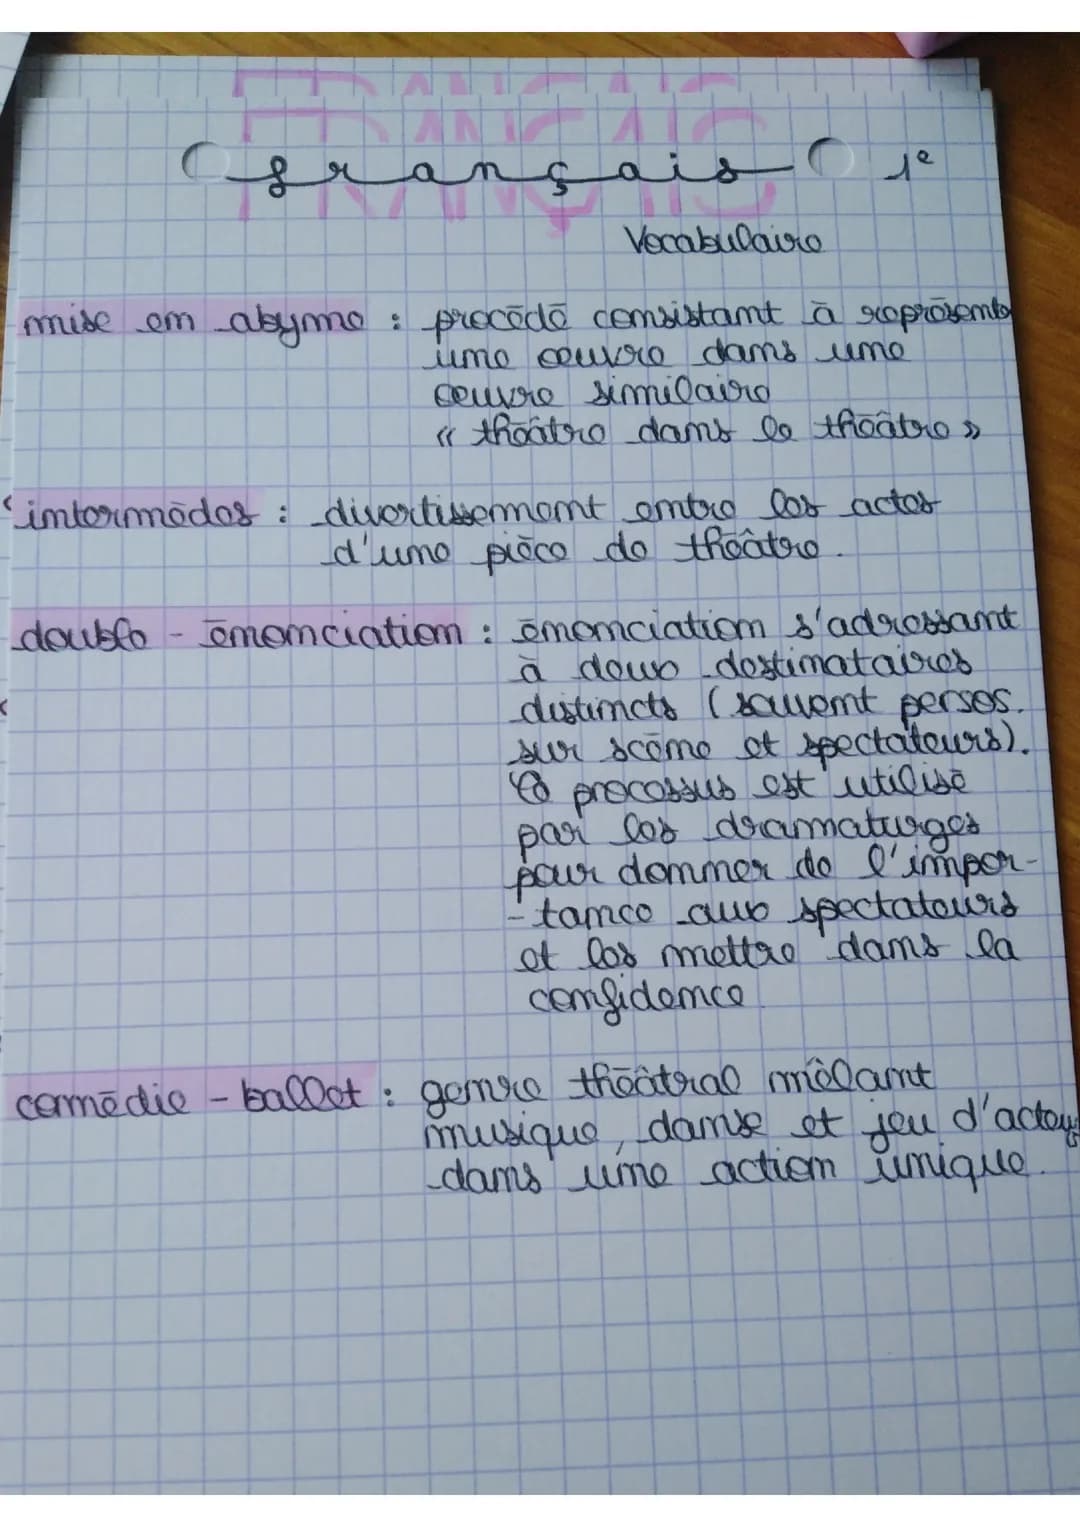 FRANÇAIS
français 1e
Vocabulaire
mise en abyme : procédé consistant à représent
une œuvre dans une
œuvre similaire
« théâtre dans le théâtre »
intermèdes : divertissement entre les actes
d'une pièce de théâtre.
double - énonciation : énonciation s'adressant
à deux destinataires
distincts (souvent persos.
sur scène et spectateurs).
Ce processus est utilisé
par les dramaturges
pour donner de l'impor-
-tance aux spectateurs
et les mettre dans la
confidence
comédie - ballet : genre théâtral mêlant
musique, danse et jeu d'acteurs
dans une action unique.